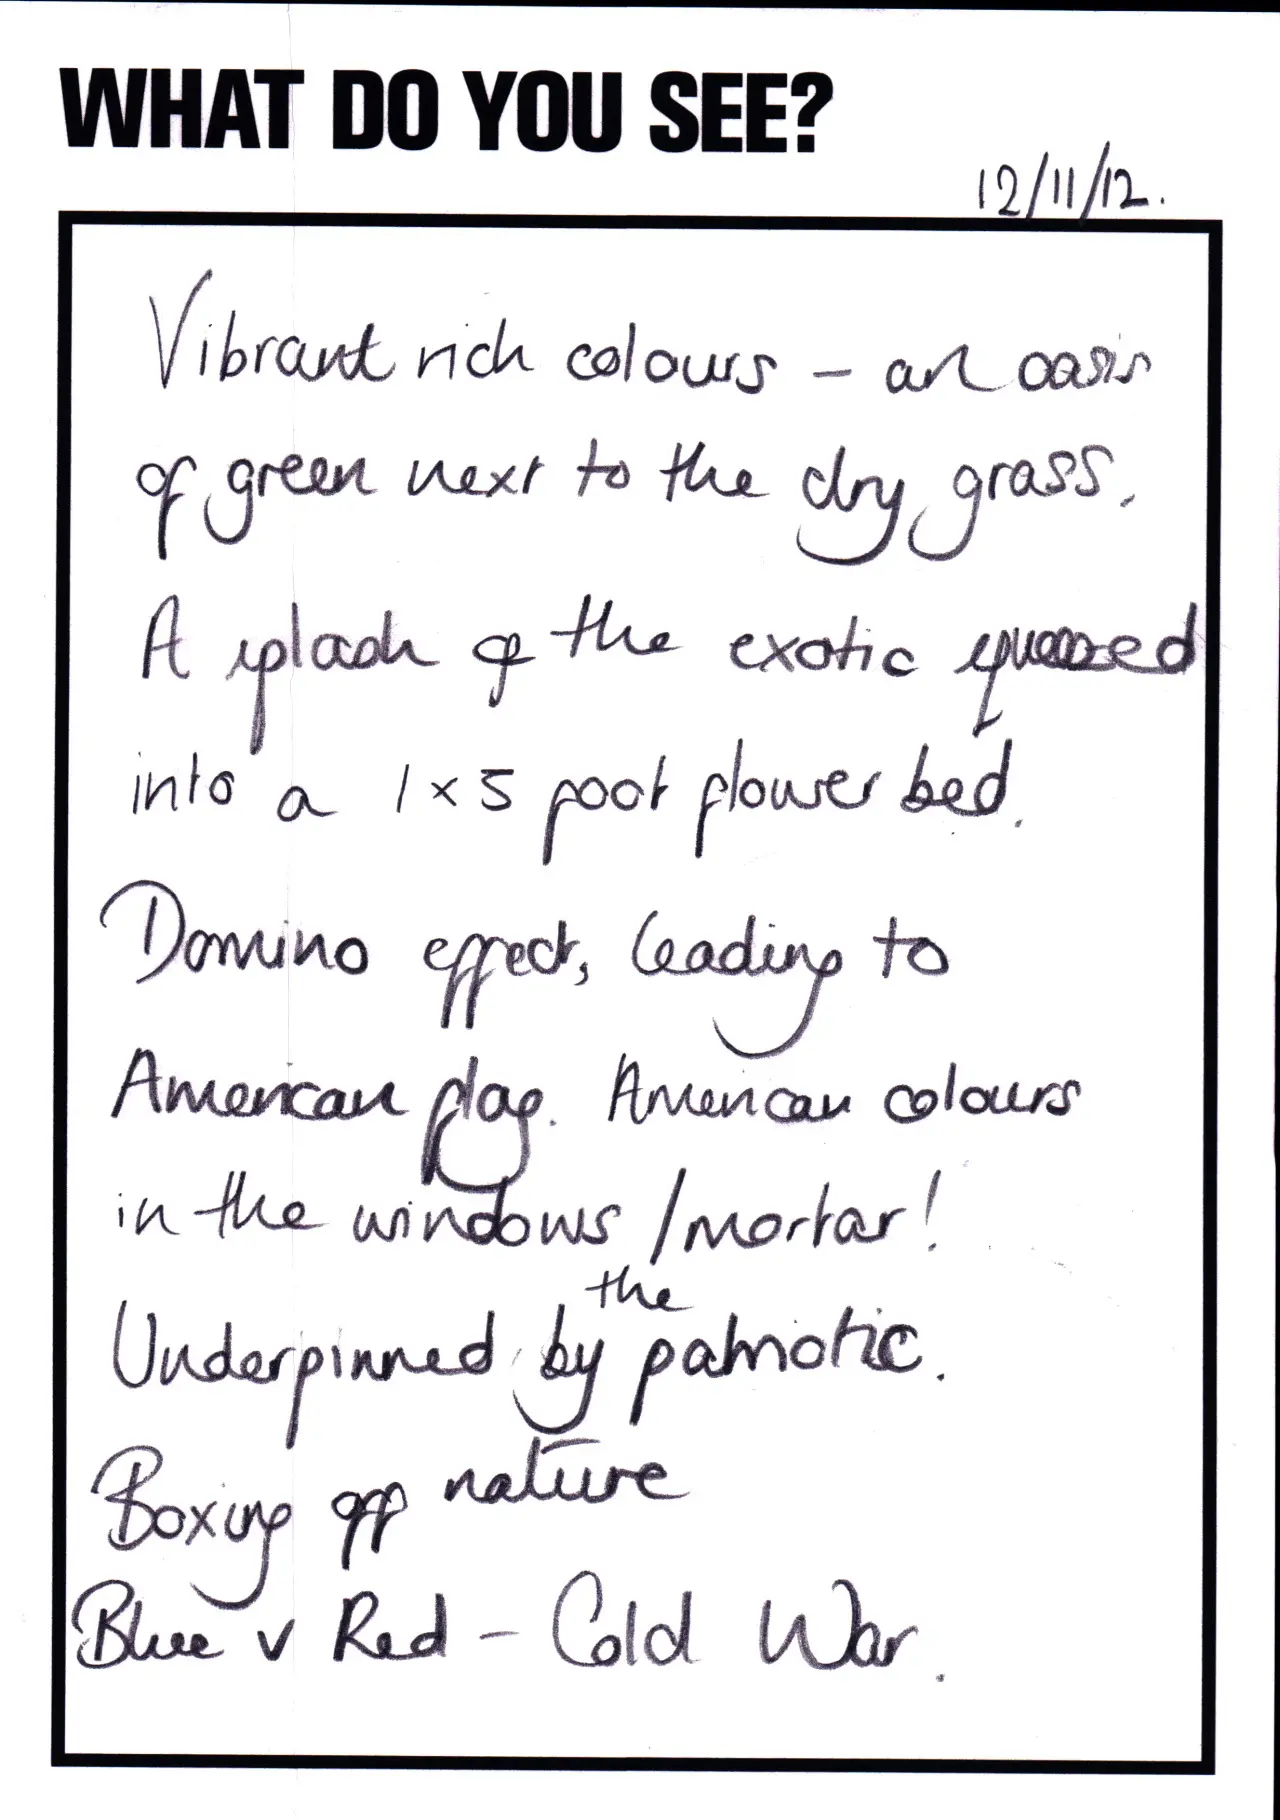 WHAT DO YOU SEE?
12/11/12.
Vibrant rich colours – an oasis
of green next to the dry grass.
A splash of the exotic squeezed
into a 1 x 5 foot flower bed.
Domino effect, leading to
American flag. American colours
in the windows / mortar!
the
Underpinned by patriotic.
Boxing off nature
Blue v Red – Cold War.